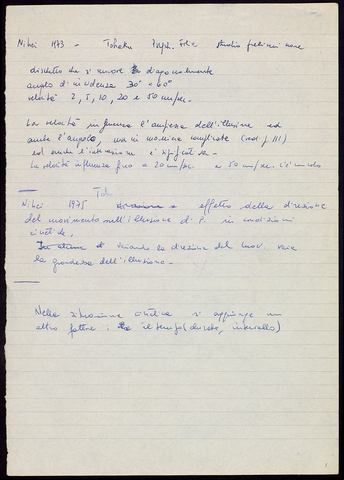 Nihei 1973 - Tohoku Psych. Folia studio preliminare
dischetto che si muove diagonalmente
angolo d'incidenza 30° e 60°
velocità 2, 5, 10, 20 e 50 cm/sec.
La velocità influenza l'ampiezza dell'illusione ed
anche l'angolo, ma in maniera complicata (ved. p. 111)
ed anche l'interazione è significativa.
La velocità influenza fino a 20 cm/sec. a 50 cm/sec. c'è
Toh.
Nihei 1975 - effetto della direzione
del movimento sull'illusione di P. in condizioni
cinetiche.
variando la direzione del mov. varia
la grandezza dell'illusione -
Nella situazione cinetica si aggiunge un
altro fattore: il tempo (durata, intervallo)